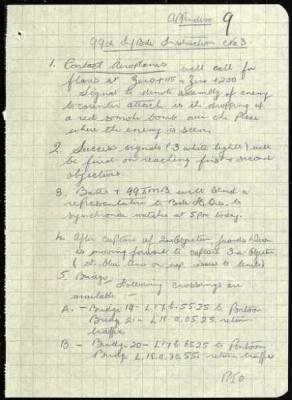 Appendix 9
99th I/Bde Instruction No 3
1. Contact Aeroplanes will call for
flares at Zero + 105 & Zero + 200
Signal to denote assembly of enemy
to counter attack is the dropping of
a red smoke bomb over the place
where the enemy is seen.
2. Success signals (3 white lights) will
be fired on reaching first & second
objectives.
3. Battns & 99 TMB will send a
representative to Bde H.Q. to
synchronize watches at 5pm today.
4. After capture of 2nd objective
is moving forward to capture 3rd objective
5. Bridges
Following crossings are
available :-
A. - Bridge 19 - L.17.b.55.25 to Pontoon
Bridge 21 - L.18.a.05.25 return
traffic
B. - Bridge 20 - L.17.b.65.25 to Pontoon
Bridge L.18.a.30.55 return traffic
PTO